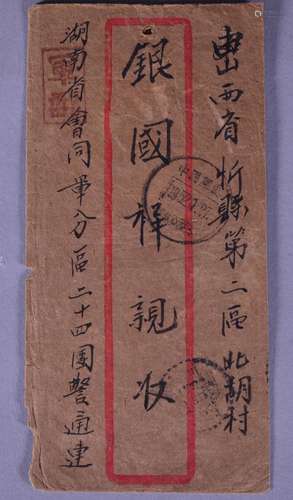 山西省忻縣第二區北胡村
銀國祥親收
湖南省會同軍分區二十四團警通連